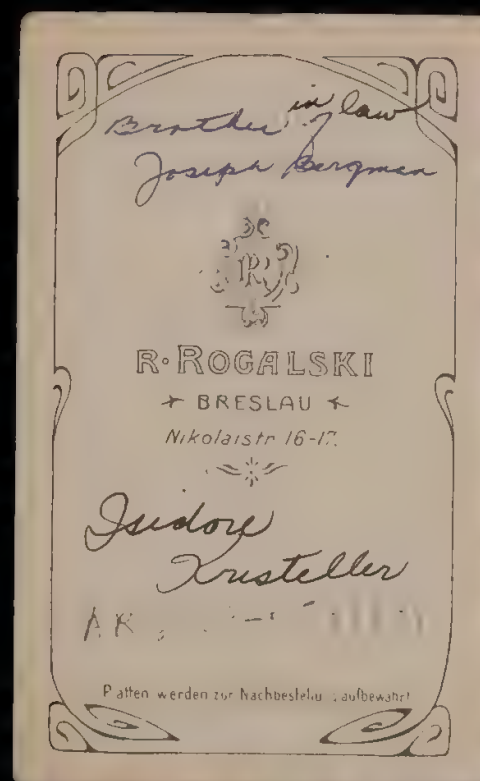 Brother in law
Joseph Bergman
R
R. ROGALSKI
BRESLAU
Nikolaistr 16-17.
Isidore
Kristeller
Platten werden zur aufbewahrt